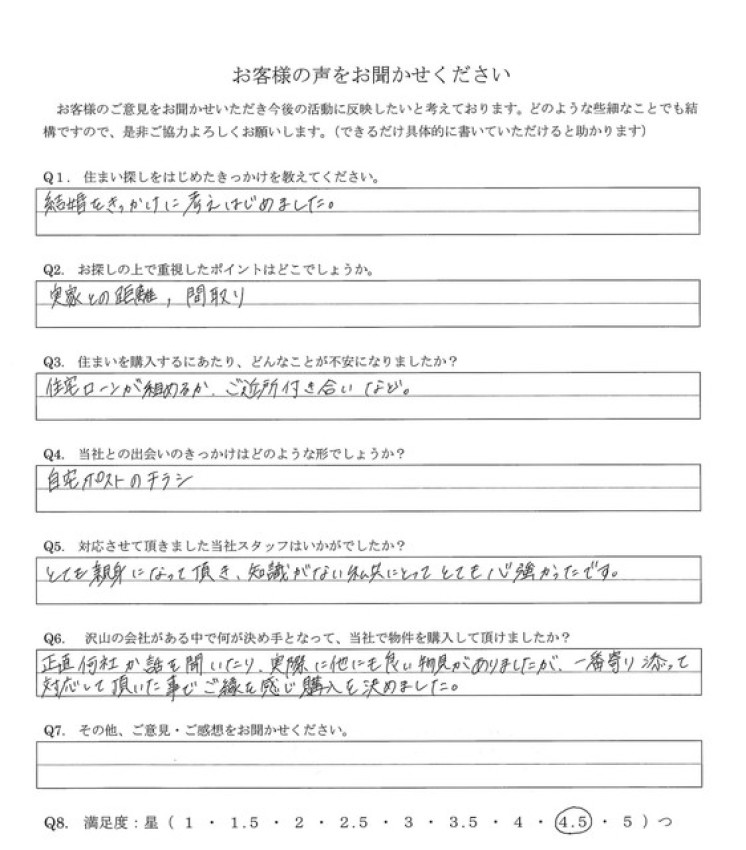 お客様の声をお聞かせください
お客様のご意見をお聞かせいただき今後の活動に反映したいと考えております。どのような些細なことでも結
構ですので、是非ご協力よろしくお願いします。（できるだけ具体的に書いていただけると助かります）
Q1. 住まい探しをはじめたきっかけを教えてください。
結婚をきっかけに考えはじめました。
Q2. お探しの上で重視したポイントはどこでしょうか。
実家との距離, 間取り
Q3. 住まいを購入するにあたり、どんなことが不安になりましたか？
住宅ローンが組めるか、ご近所付き合いなど。
Q4. 当社との出会いのきっかけはどのような形でしょうか？
自宅ポストのチラシ
Q5. 対応させて頂きました当社スタッフはいかがでしたか？
とても親身になって頂き、知識がない私共にとってとても心強かったです。
Q6. 沢山の会社がある中で何が決め手となって、当社で物件を購入して頂けましたか？
正直何社か話を聞いたり、実際に他にも良い物見がありましたが、一番寄り添って
対応して頂いた事でご縁を感じ購入を決めました。
Q7. その他、ご意見・ご感想をお聞かせください。
Q8. 満足度：星（ 1 ・ 1.5 ・ 2 ・ 2.5 ・ 3 ・ 3.5 ・ 4 ・ 4.5 ・ 5 ）つ